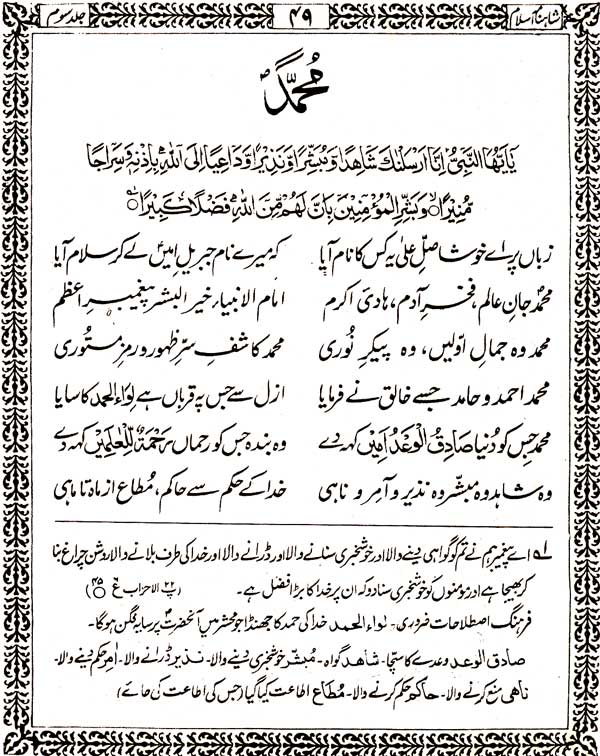 شاہنامہ اسلام ۴۹ جلد سوم
مُحمّدؐ
يٰۤاَيُّهَا النَّبِيُّ اِنَّاۤ اَرْسَلْنٰكَ شَاهِدًا وَّمُبَشِّرًا وَّنَذِيْرًا وَّدَاعِيًا اِلَى اللهِ بِاِذْنِهٖ وَسِرَاجًا
مُّنِيْرًا وَبَشِّرِ الْمُؤْمِنِيْنَ بِاَنَّ لَهُمْ مِّنَ اللهِ فَضْلًا كَبِيْرًا ؎۱
زباں پر اے خوشا صلِّ علیٰ یہ کس کا نام آیا کہ میرے نام جبریلِ امیںؑ لے کر سلام آیا
محمدؐ جانِ عالم، فخرِ آدم، ہادیٔ اکرم امام الانبیاء خیر البشر پیغمبرِ اعظم
محمد وہ جمالِ اوّلیں، وہ پیکرِ نُوری محمد کاشفِ سرِّ ظہور و رمزِ مستُوری
محمد احمد و حامد جسے خالق نے فرمایا ازل سے جس پہ قرباں ہے لِواءُ الحمد کا سایا
محمدؐ جس کو دُنیا صَادِقُ الْوَعْد اَمِیْں کہہ دے وہ بندہ جس کو رحماں رَحْمَةٌ لِّلْعٰلَمِیْں کہہ دے
وہ شاہد وہ مبشّر وہ نذیر و آمر و ناہی خدا کے حکم سے حاکم، مُطاع از ماہ تا ماہی
؎۱ اے پیغمبر ہم نے تم کو گواہی دینے والا اور خوشخبری سنانے والا اور ڈرانے والا اور خدا کی طرف بلانے والا روشن چراغ بنا
کر بھیجا ہے اور مؤمنوں کو خوشخبری سنادو کہ ان پر خدا کا بڑا افضل ہے۔ (۲۲ الاحزاب ع
فرہنگ اصطلاحات ضروری۔ لواء الحمد خدا کی حمد کا جھنڈا جو محشر میں آنحضرتؐ پر سایہ فگن ہوگا۔
صادق الوعد وعدے کا سچا۔ شاھد گواہ۔ مُبشّر خوشخبری دینے والا۔ نذیر ڈرانے والا۔ اٰمر حکم دینے والا۔
ناھی منع کرنے والا۔ حاکم حکم کرنے والا۔ مُطاع اطاعت کیا گیا (جس کی اطاعت کی جائے)